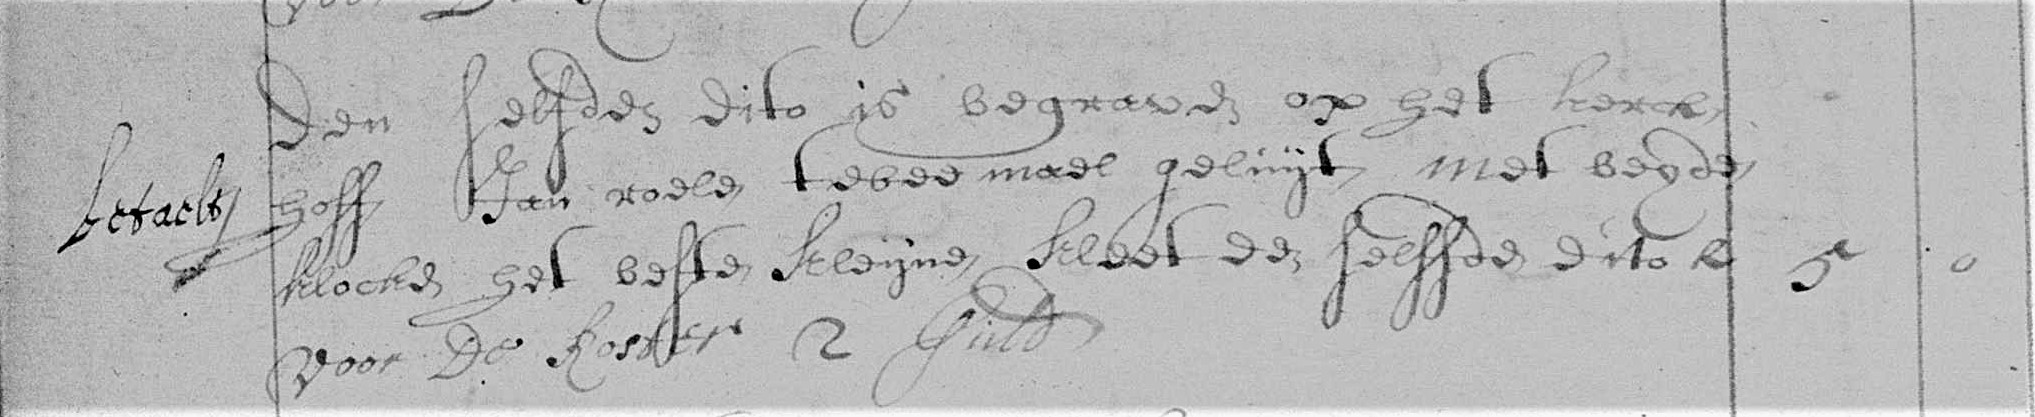 Den selfden dito is begraven op het kerck
betaelt hoff Jan roele twee mael geluijt met beyde
klocken het beste kleijne kleet de selffde dito 5 0
voor De Koster 2 Guld